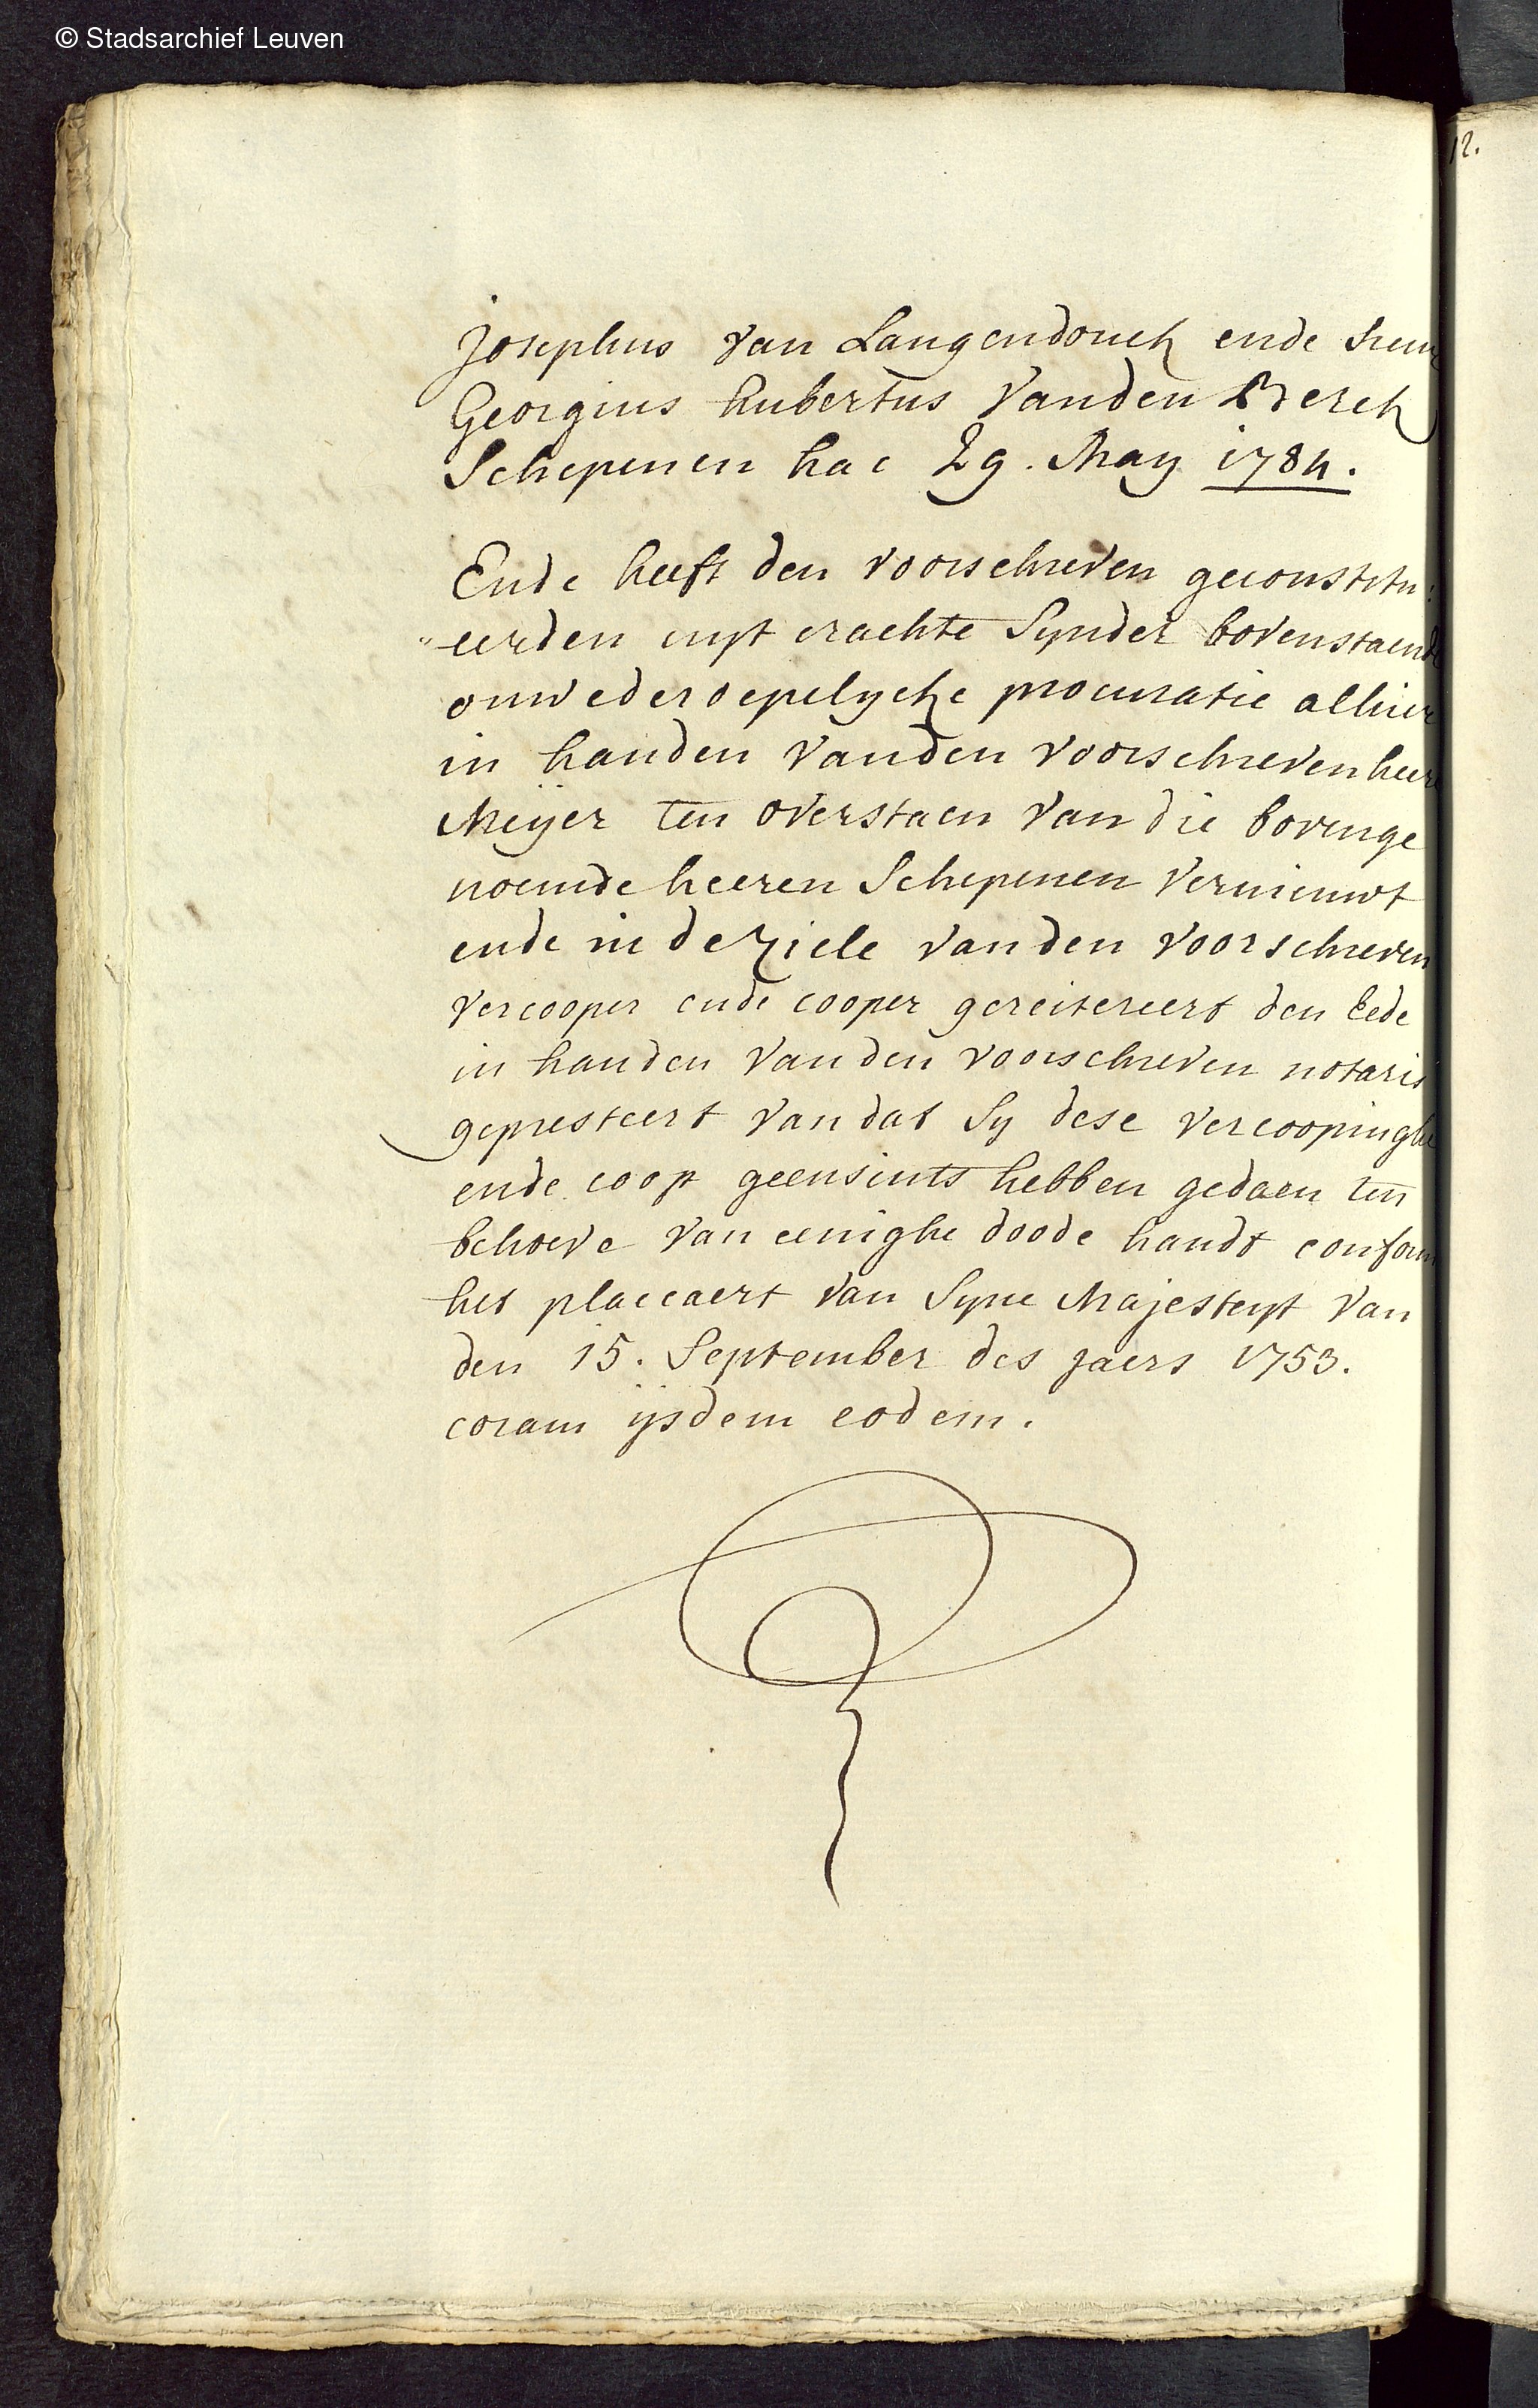 © Stadsarchief Leuven
12.
Josephus van Langendonck ende heer
Georgius hubertus Vanden Berch
Schepenen hac 29. May 1784.
Ende heeft den voorschreven geconstitu:
"eerden uyt crachte Synder bovenstaende
onwederoepelycke procuratie alhier
in handen Vanden voorschreven heere
Meyer ten overstaen van die bovenge
noemde heeren Schepenen vernieuwt
ende in de ziele vanden voorschreven
vercooper ende cooper gereitereert den Eede
in handen vanden voorschreven notaris
gepresteert van dat Sy dese vercoopinghe
ende coop geensints hebben gedaen ten
behoeve van eenighe doode handt conform
het placcaert van Syne Majesteyt van
den 15. September des jaers 1753.
coram ijsdem eodem.